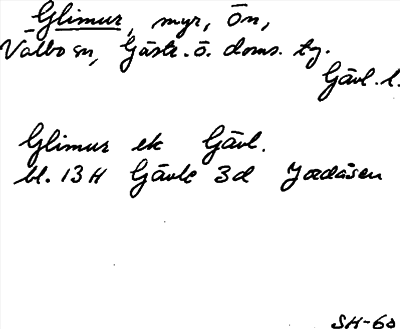 Glimur, myr, Ön,
Valbo sn, Gästr. ö. doms. tg.
Gävl. l.
Glimur ek Gävl.
bl. 13 H Gävle 3d Jordåsen
SH-60